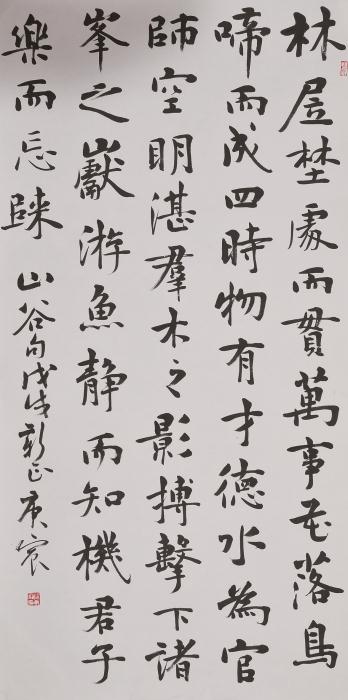 林居埜處而貫萬事花落鳥
啼而成四時物有才德水為官
師空明湛羣木之影搏擊下諸
峯之巘游魚靜而知機君子
樂而忘踈 山谷句戊戌新正庚宸